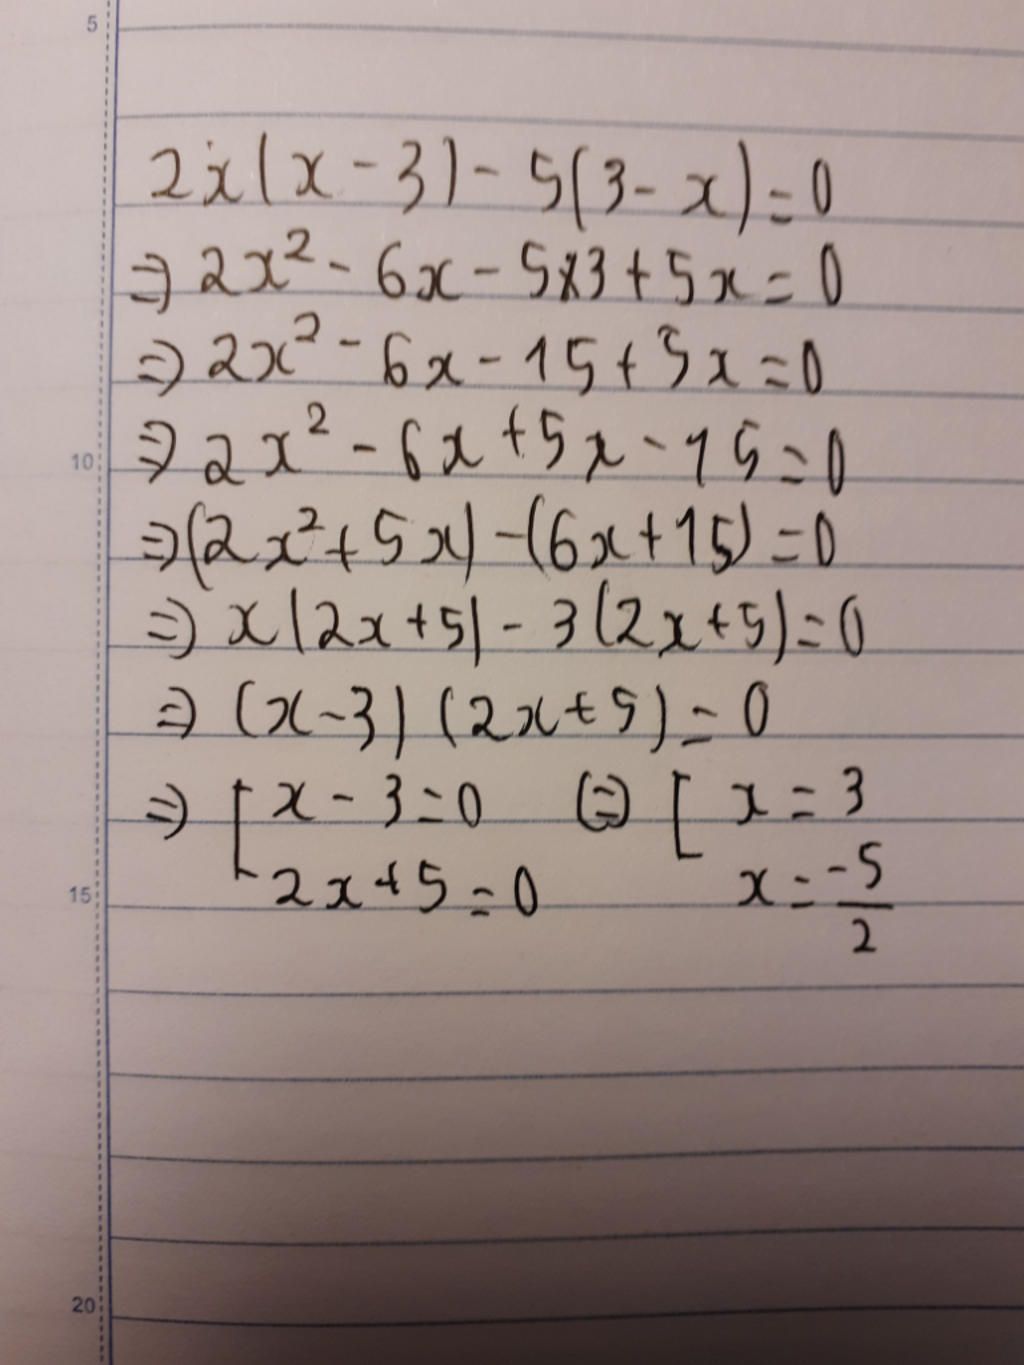 5
2x(x-3)-5(3-x)=0
=> 2x²-6x-5x3+5x=0
=> 2x²-6x-15+5x=0
10
=> 2x²-6x+5x-15=0
=> (2x²+5x)-(6x+15)=0
=> x(2x+5)-3(2x+5)=0
=> (x-3)(2x+5)=0
=> [ x-3=0 (=) [ x=3
15
2x+5=0 x=-5/2
20